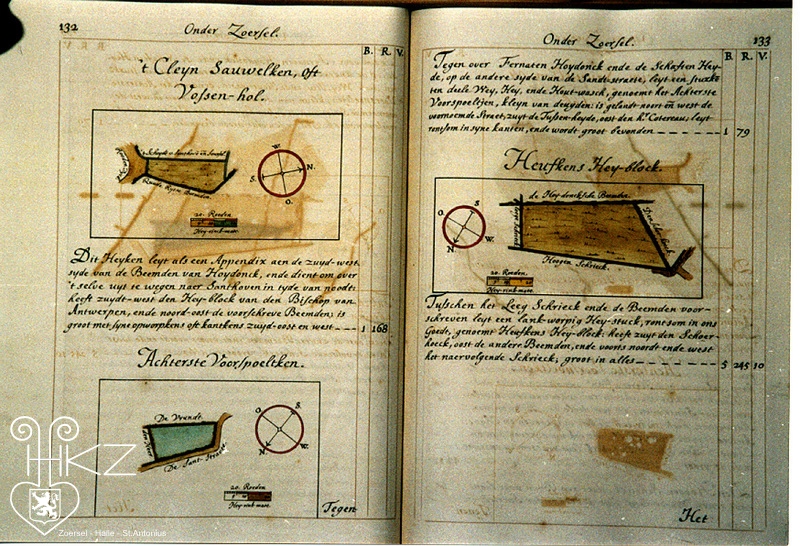 132
Onder Zoersel.
B. R. V.
't Cleyn Sauwelken, oft
Vossen-hol.
W.
N.
S.
O.
20. Roeden
Hey-eind-mate
Dit Heyken leyt als een Appendix aen de zuyd-west
syde van de Beemden van Heydonck, ende dient om over
't selve uyt te wegen naer Santhoven in tyde van noodt:
heeft zuydt-west den Hey-block van den Bisschop van
Antwerpen, ende noord-oost de voorschreve Beemden; is
groot met syne opworpkens oft kantkens zuyd-oost en west 1 168
Achterste Voorspoeltken.
De Vrundt
De Sant-Straete
O.
S.
N.
W.
20. Roeden
Tegen
Onder Zoersel.
133
B. R. V.
Tegen over Fernaten Hoydonck ende de Schaften Hey-
de, op de andere syde van de Sandt-straete, leyt een stuckx-
ten deele Wey, Hey, ende Hout-wasch, genoemt het Achterste
Voorspoeltjen, kleyn van deuyden: is gelandt noort en west de
voornoemde Straet, zuyt de Tussen-heyde, oost den hr. Cotereau; leyt
rontsom in syne kanten, ende wordt groot bevonden 1 79
Heufkens Hey-block.
de Hey-donckische Beemden
O.
S.
N.
W.
Hoogen Schrieck.
20. Roeden.
Tusschen het Leeg Schrieck ende de Beemden voor-
schreven leyt een lanck-worpig Hey-stuck, rontsom in ons
Goedt, genoemt Heufkens Hey-block: heeft zuyt den Schoer-
hoeck, oost de andere Beemden, ende voorts noordt ende west
het naervolgende Schrieck; groot in alles 5 245 10
Het
HKZ
Zoersel - Halle - St.Antonius